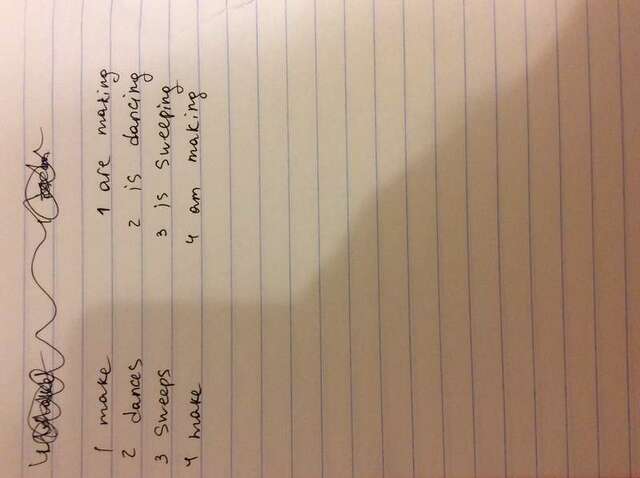 1 make 1 are making
2 dances 2 is dancing
3 Sweeps 3 is Sweeping
4 make 4 am making